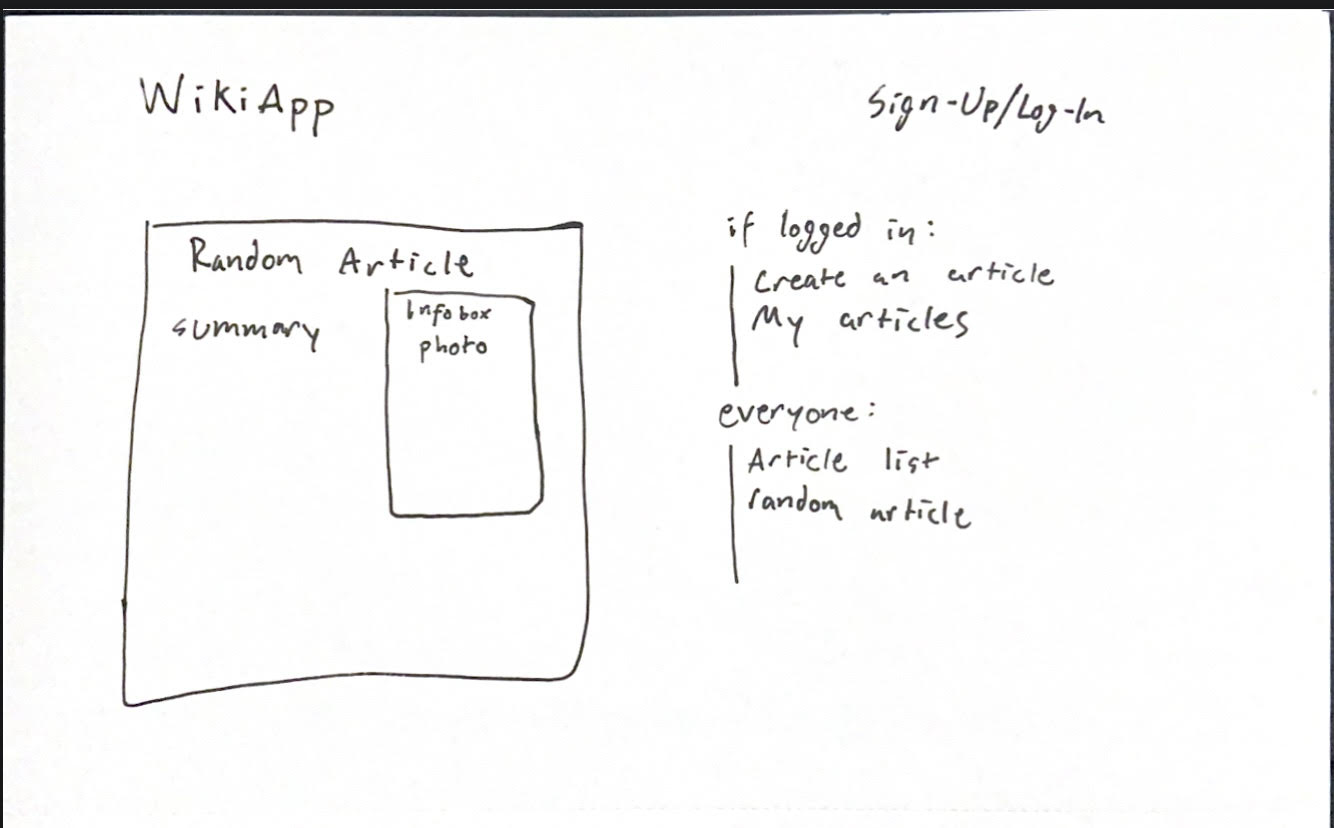 WikiApp
Sign-Up/Log-In
Random Article
summary
Infobox
photo
if logged in:
Create an article
My articles
everyone:
Article list
random article